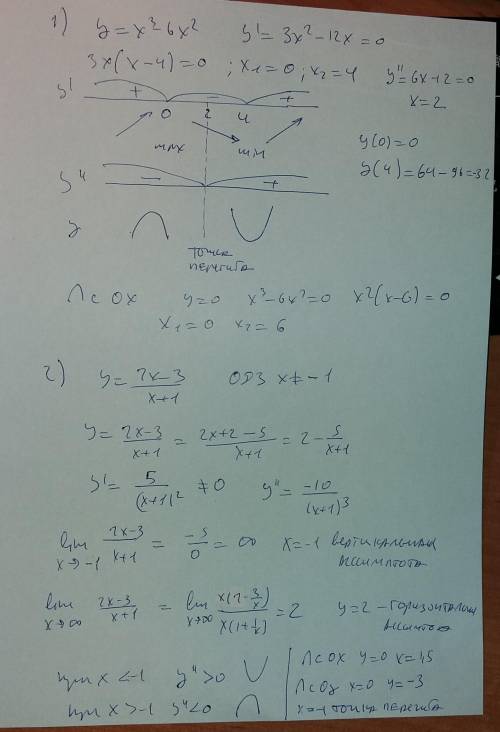 1) y = x³-6x² y' = 3x²-12x = 0
3x(x-4)=0 ; x₁=0 ; x₂=4 y''=6x-12=0
x=2
y' + - +
0 2 4
max min
y(0)=0
y(4)=64-96=-32
y'' - +
y
точка
перегиба
∩ с OX y=0 x³-6x²=0 x²(x-6)=0
x₁=0 x₂=6
2) y = (2x-3)/(x+1) ОДЗ x≠-1
y = (2x-3)/(x+1) = (2x+2-5)/(x+1) = 2 - 5/(x+1)
y' = 5/(x+1)² ≠0 y'' = -10/(x+1)³
lim x→-1 (2x-3)/(x+1) = -5/0 = ∞ x=-1 вертикальная
ассимптота
lim x→∞ (2x-3)/(x+1) = lim x→∞ x(2-3/x)/x(1+1/x) = 2 y=2 - горизонтальная
при x<-1 y''>0 ∪
при x>-1 y''<0 ∩
∩ с OX y=0 x=1,5
∩ с Oy x=0 y=-3
x=-1 точка перегиба